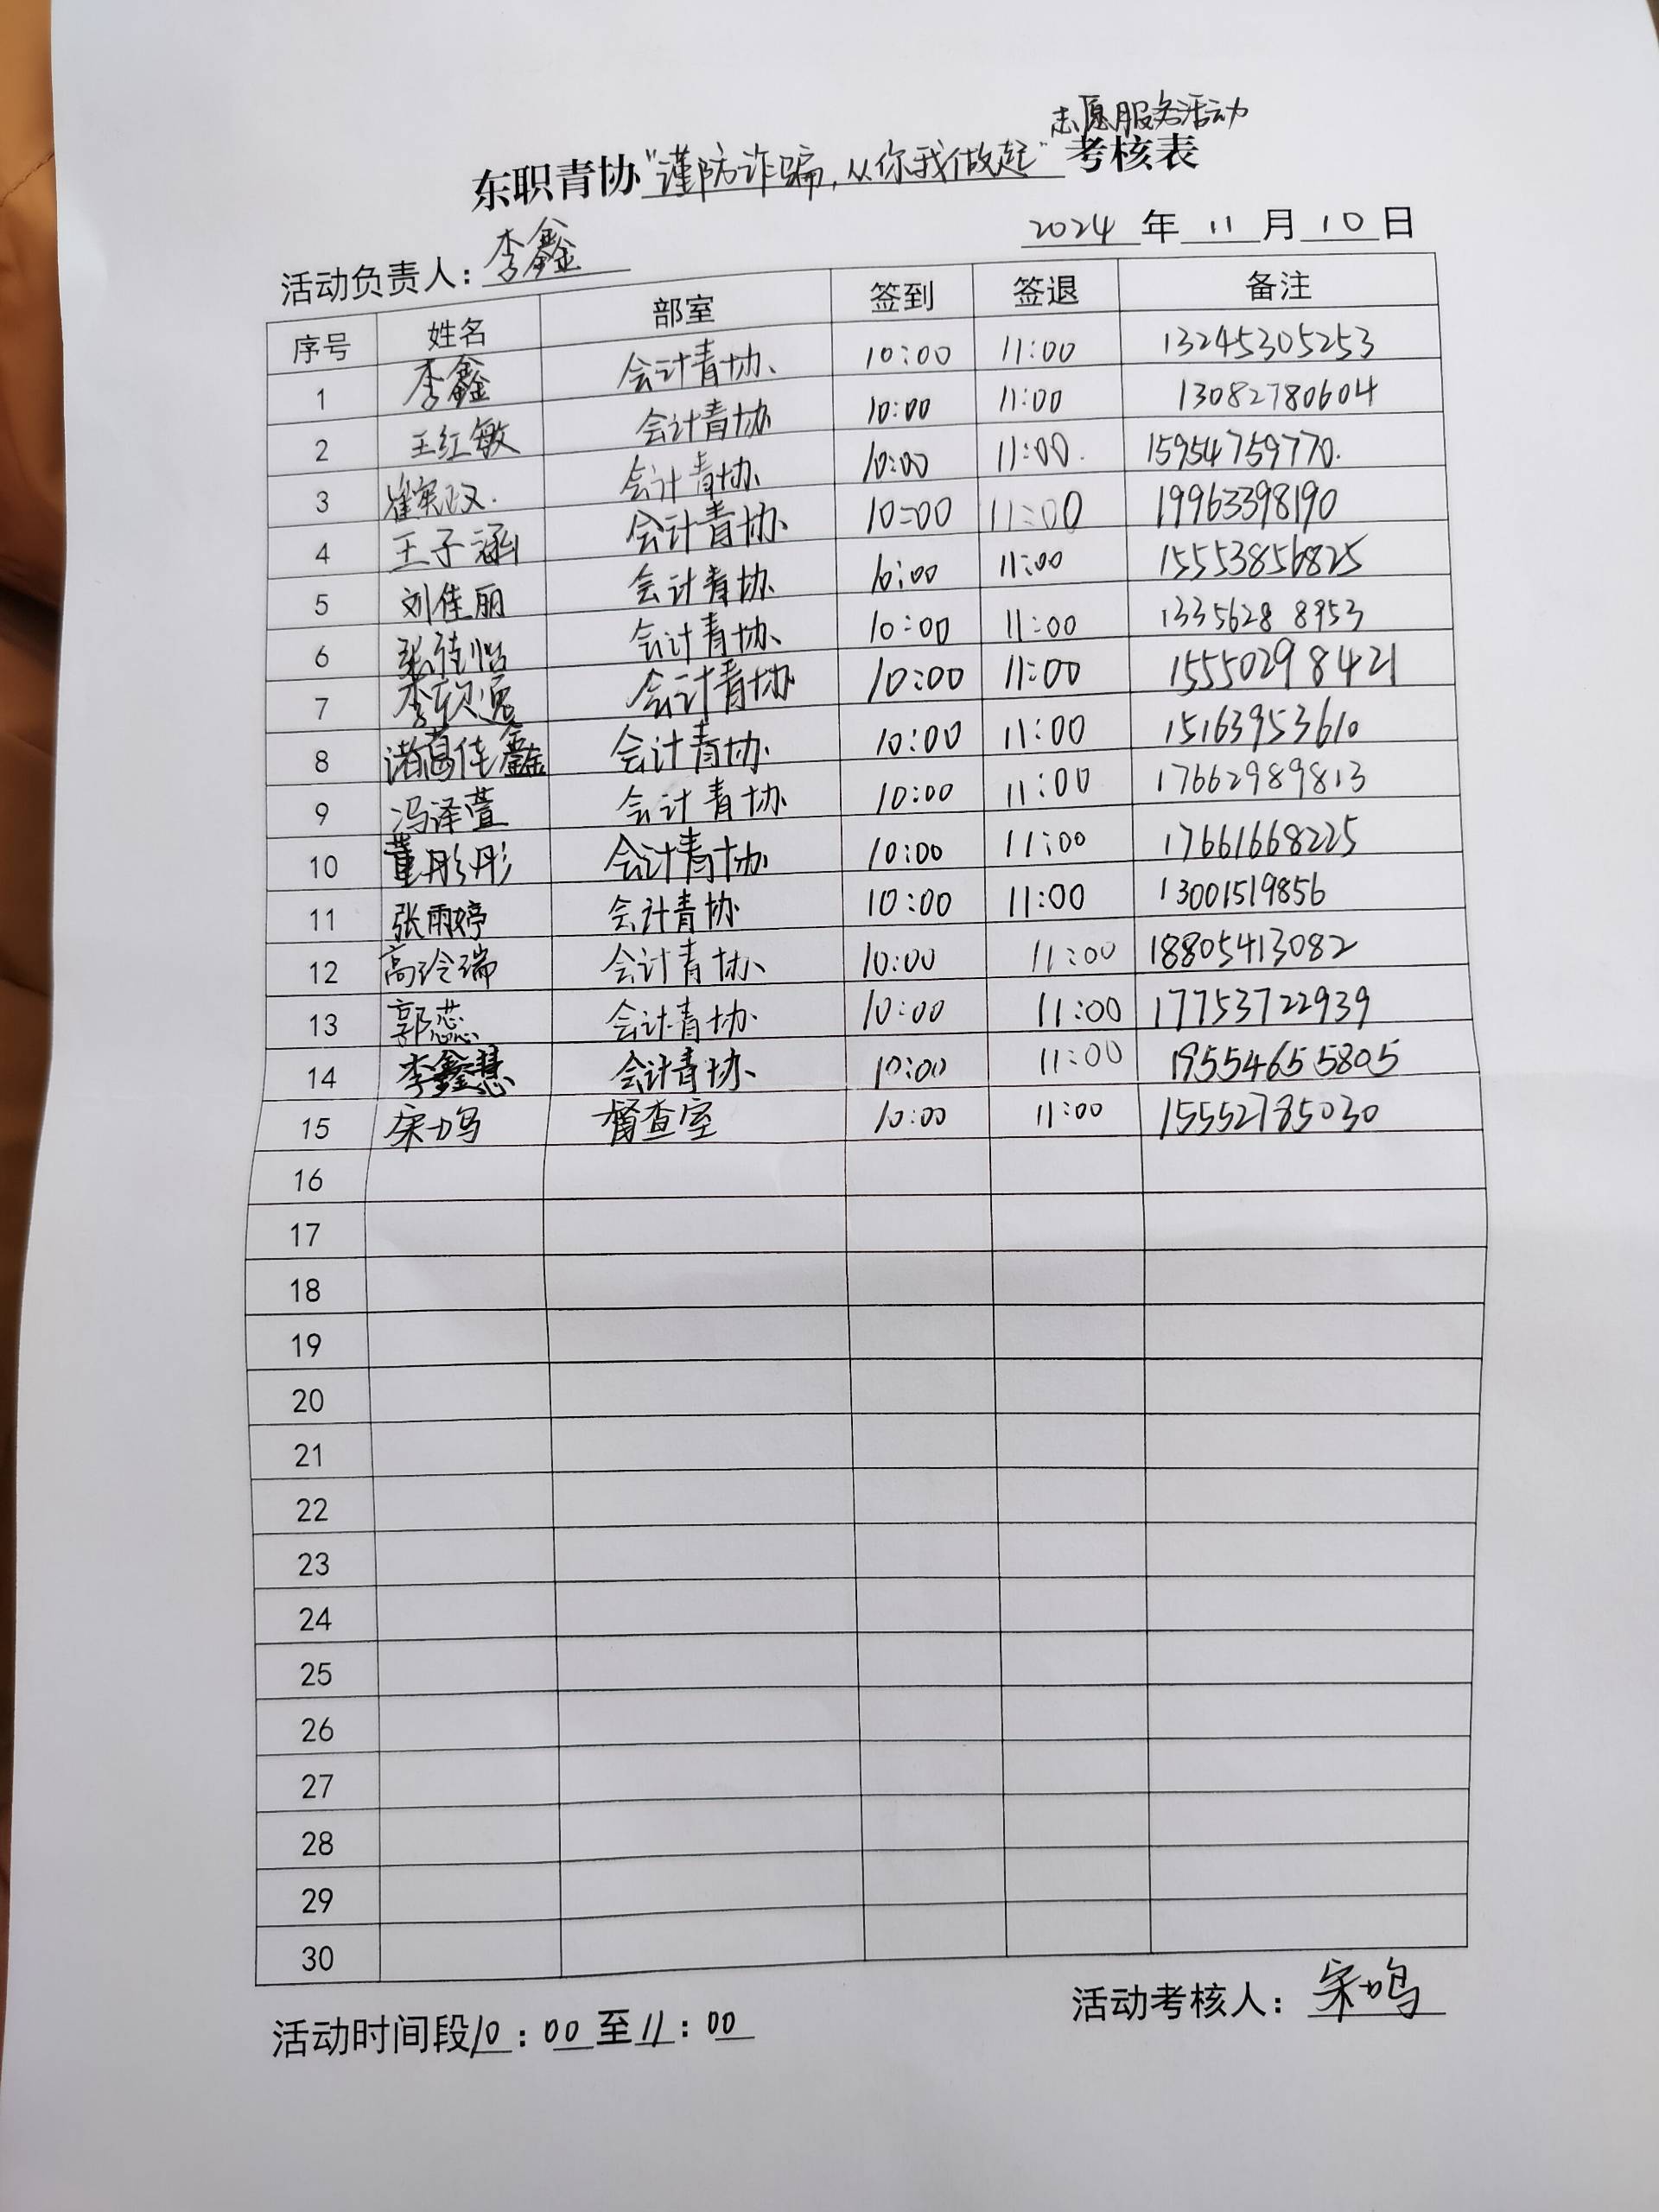 志愿服务活动
东职青协“谨防诈骗,从你我做起”考核表
2024 年 11 月 10 日
活动负责人:李鑫
序号 姓名 部室 签到 签退 备注
1 李鑫 会计青协 10:00 11:00 13245305253
2 王红敏 会计青协 10:00 11:00 13082780604
3 会计青协 10:00 11:00 15954759770
4 王子涵 会计青协 10:00 11:00 19963398190
5 刘佳丽 会计青协 10:00 11:00 15553856825
6 张佳怡 会计青协 10:00 11:00 13356288953
7 会计青协 10:00 11:00 15550298421
8 诸葛佳鑫 会计青协 10:00 11:00 15163953610
9 冯泽萱 会计青协 10:00 11:00 17662989813
10 董彤彤 会计青协 10:00 11:00 17661668225
11 张雨婷 会计青协 10:00 11:00 13001519856
12 高玲瑞 会计青协 10:00 11:00 18805413082
13 郭蕊 会计青协 10:00 11:00 17753722939
14 李鑫慧 会计青协 10:00 11:00 19554655805
15 宋鸣 督查室 10:00 11:00 15552785030
16
17
18
19
20
21
22
23
24
25
26
27
28
29
30
活动时间段10:00至11:00
活动考核人:宋鸣